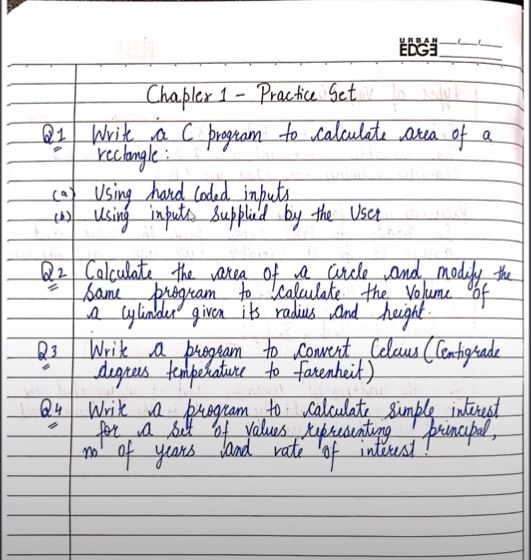 URBAN
EDGE
Chapter 1 - Practice Set
Q1 Write a C program to calculate area of a
rectangle:
(a) Using hard coded inputs
(b) Using inputs supplied by the User
Q2 Calculate the area of a Circle and modify the
same program to calculate the Volume of
a Cylinder given its radius and height.
Q3 Write a program to convert Celcius (Centigrade
degrees temperature to farenheit)
Q4 Write a program to calculate simple interest
for a set of values representing principal,
no of years and rate of interest.